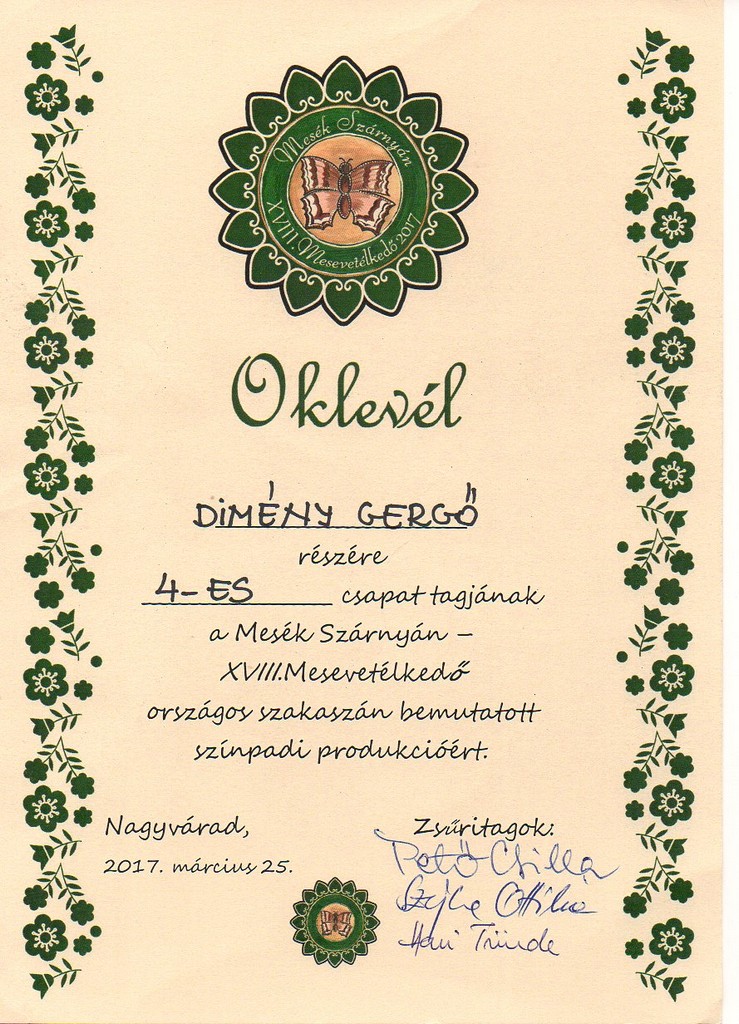 Mesék Szárnyán
XVIII. Mesevetélkedő 2017
Oklevél
DIMÉNY GERGŐ
részére
4-ES csapat tagjának
a Mesék Szárnyán –
XVIII.Mesevetélkedő
országos szakaszán bemutatott
színpadi produkcióért.
Nagyvárad,
2017. március 25.
Zsűritagok:
Pető Csilla
Attila
Tünde